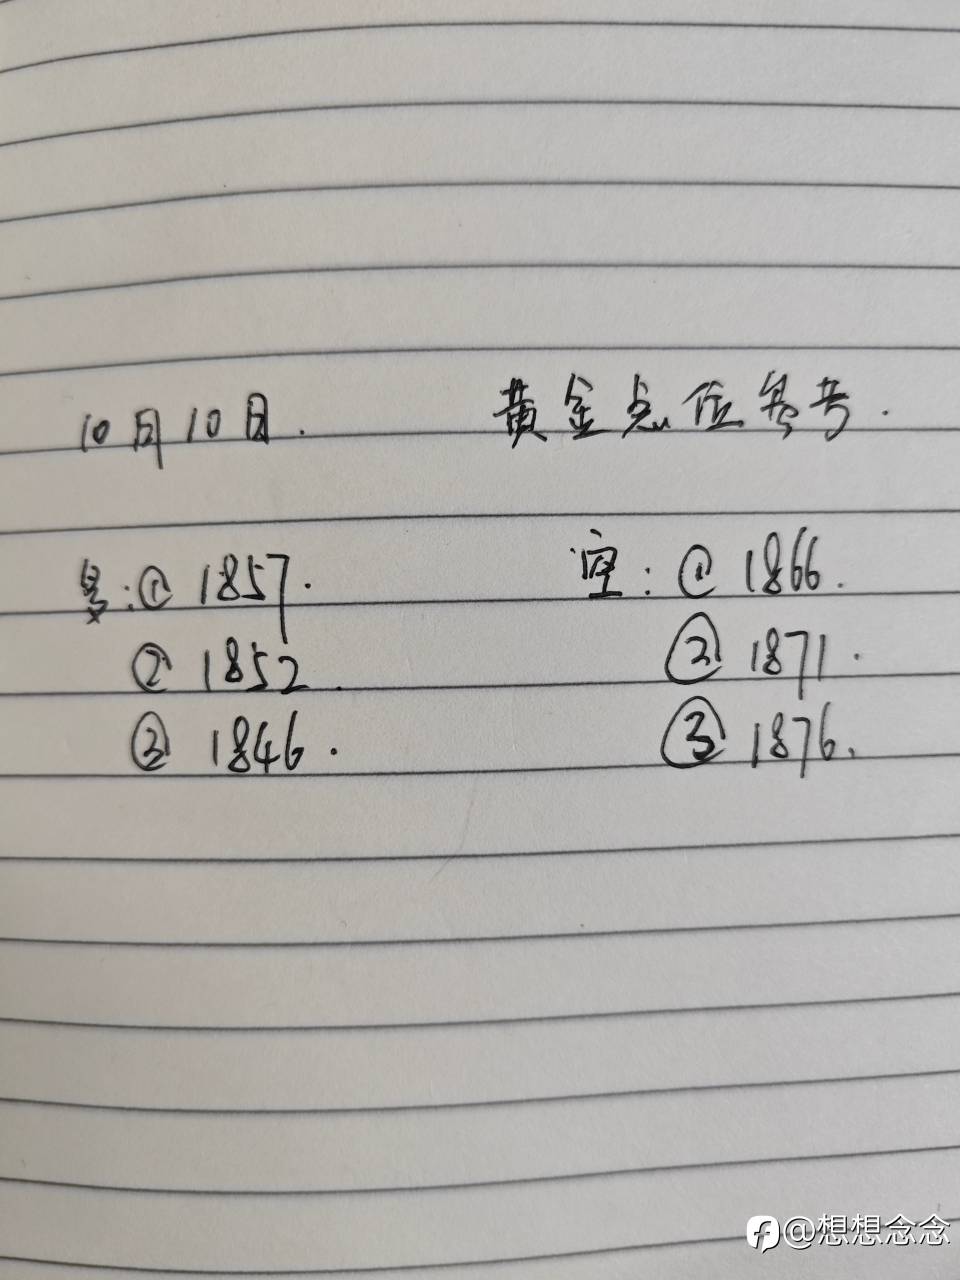 10月10日. 黄金点位参考.
多:① 1857. 空:① 1866.
② 1852. ② 1871.
③ 1846. ③ 1876.
@想想念念